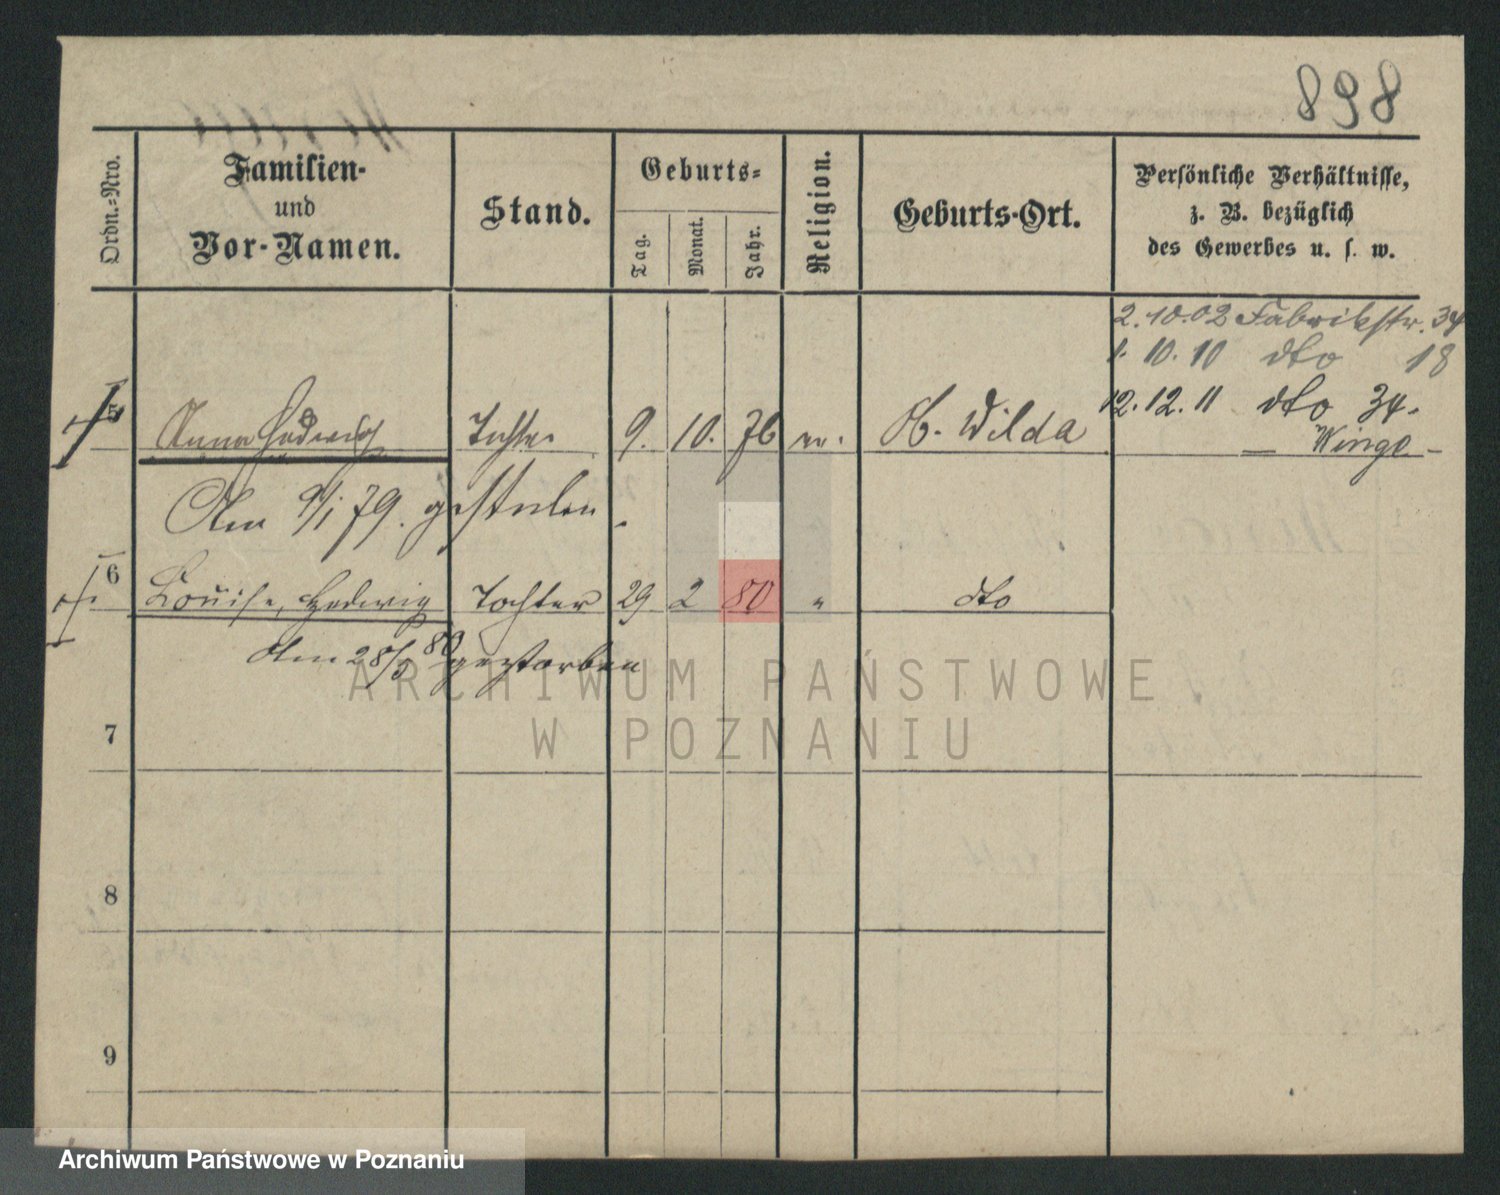 898
Ordn.-Nro.
Familien-
und
Vor-Namen.
Stand.
Geburts-
Tag.
Monat.
Jahr.
Religion.
Geburts-Ort.
Persönliche Verhältnisse,
z. B. bezüglich
des Gewerbes u. s. w.
2. 10. 02 Fabrikstr. 34
1. 10. 10 dto 18
12. 12. 11 dto 34.
Winge
5 Anna Hedwig Tochter 9. 10. 76 ev. O. Wilda
Am 9/1 79. gestorben.
6 Louise, Hedwig Tochter 29 2 80 " dto
Am 28/5 80 gestorben
7
8
9
ARCHIWUM PAŃSTWOWE
W POZNANIU
Archiwum Państwowe w Poznaniu